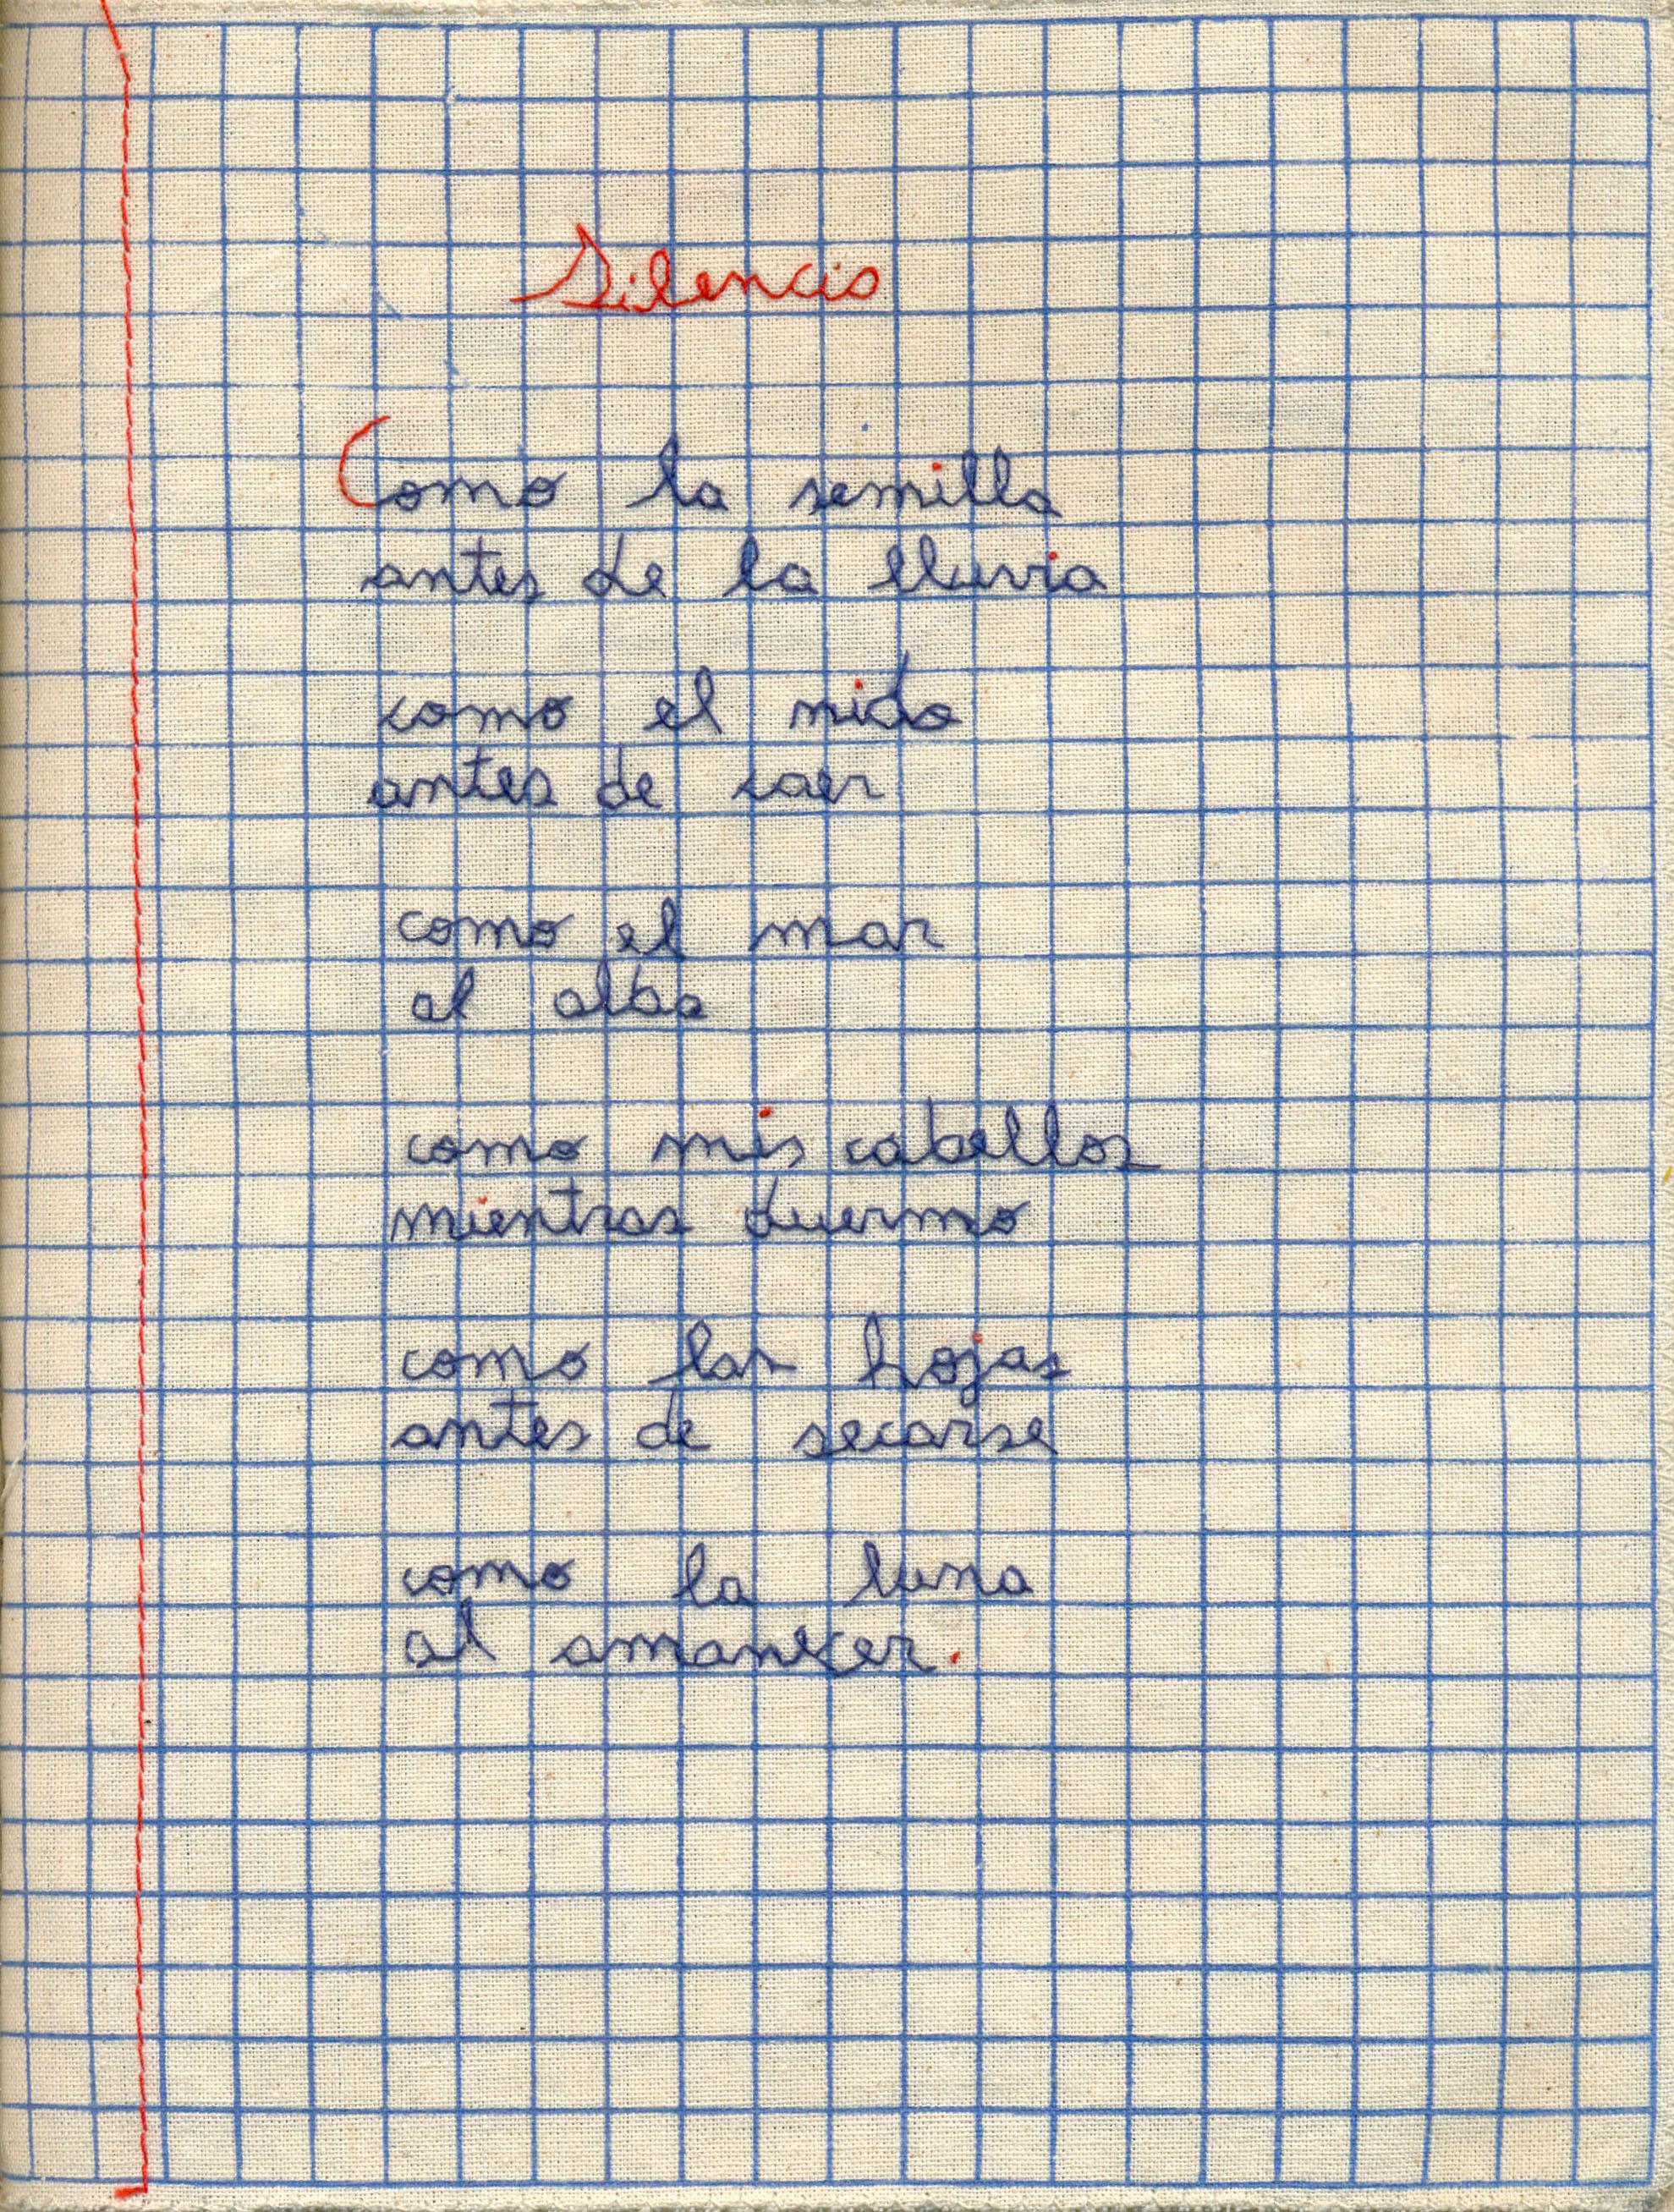 Silencio
Como la semilla
antes de la lluvia
como el nido
antes de caer
como el mar
al alba
como mis cabellos
mientras duermo
como las hojas
antes de secarse
como la luna
al amanecer.